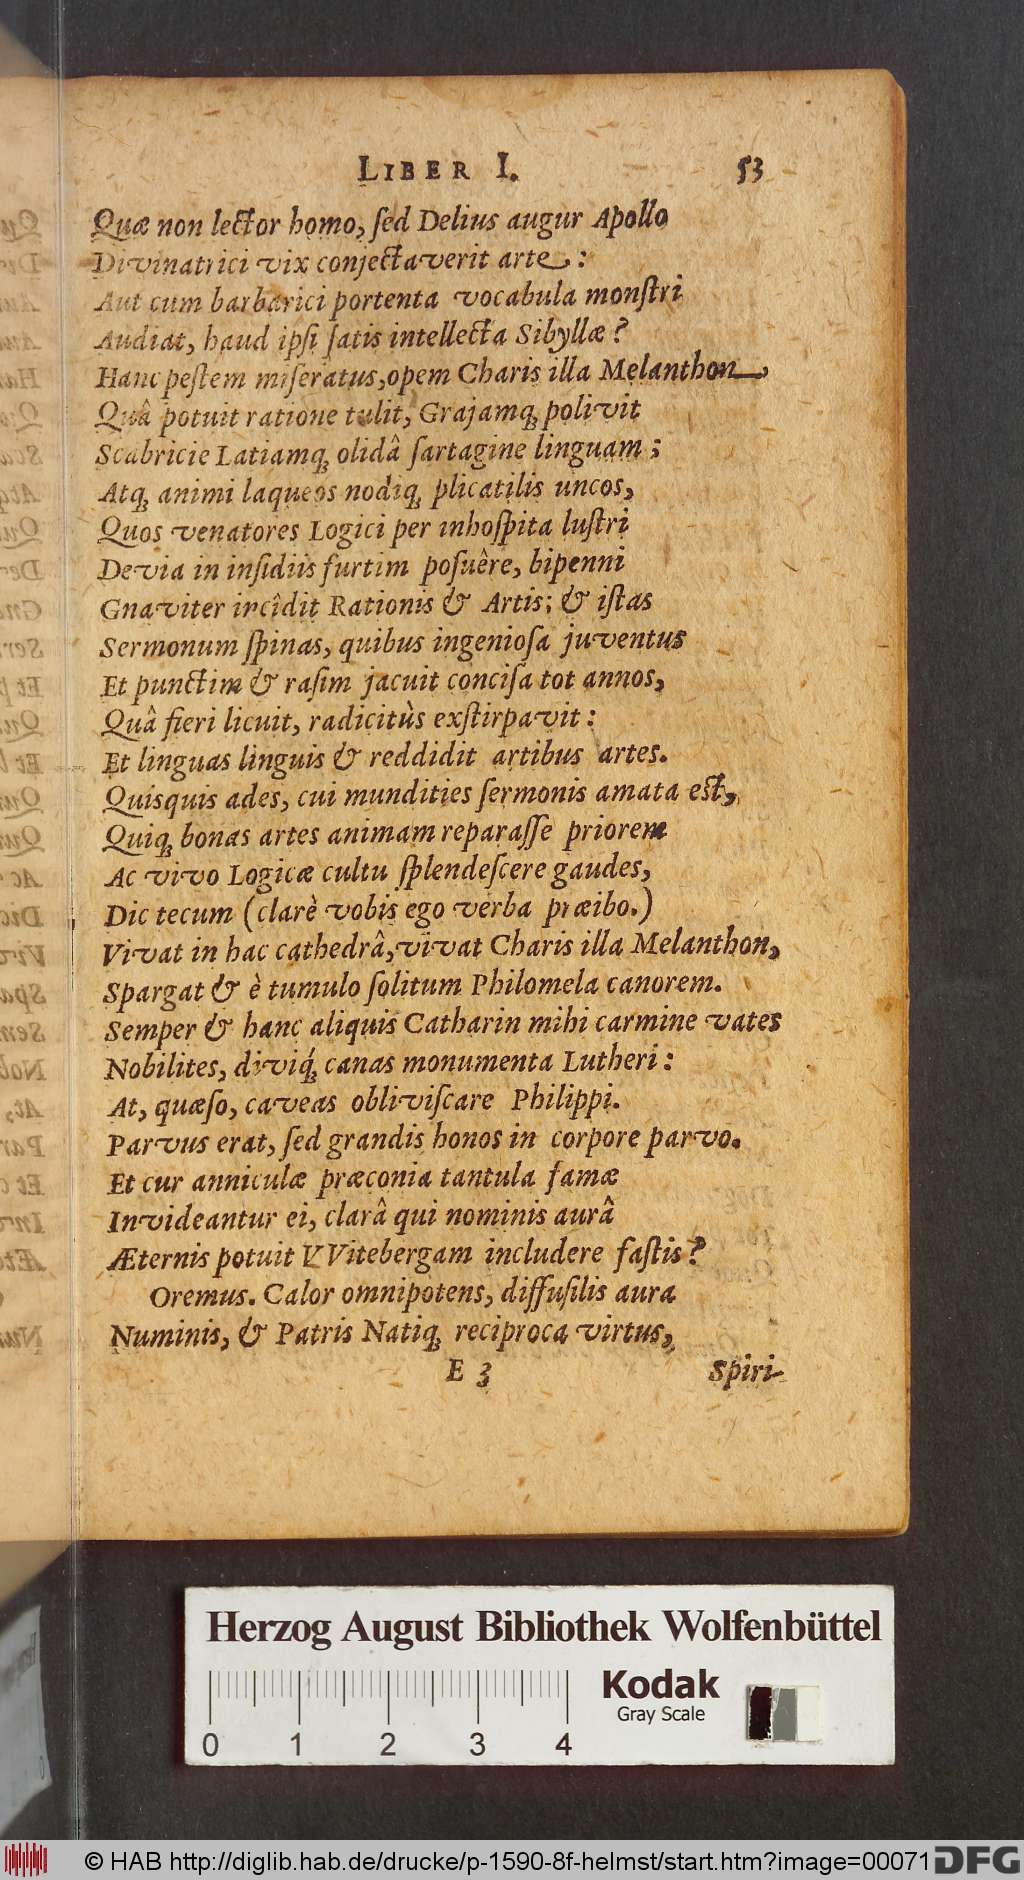 LIBER I. 53
Quæ non lector homo, ſed Delius augur Apollo
Divinatrici vix conjectaverit arte:
Aut cum barbarici portenta vocabula monſtri
Audiat, haud ipſi ſatis intellecta Sibyllæ?
Hanc peſtem miſeratus, opem Charis illa Melanthon,
Quâ potuit ratione tulit, Grajamq́ꝫ polivit
Scabricie Latiamqꝫ olidâ ſartagine linguam;
Atqꝫ animi laqueos nodiqꝫ plicatilis uncos,
Quos venatores Logici per inhoſpita luſtri
Devia in inſidiis furtim poſuêre, bipenni
Gnaviter incîdit Rationis & Artis; & iſtas
Sermonum ſpinas, quibus ingenioſa juventus
Et punctim & raſim jacuit conciſa tot annos,
Quâ fieri licuit, radicitùs exſtirpavit:
Et linguas linguis & reddidit artibus artes.
Quisquis ades, cui mundities ſermonis amata eſt,
Quiqꝫ bonas artes animam reparaſſe priorem
Ac vivo Logicæ cultu ſplendeſcere gaudes,
Dic tecum (clarè vobis ego verba præibo.)
Vivat in hac cathedrâ, vivat Charis illa Melanthon,
Spargat & è tumulo ſolitum Philomela canorem.
Semper & hanc aliquis Catharin mihi carmine vates
Nobilites, diviq́ꝫ canas monumenta Lutheri:
At, quæſo, caveas obliviſcare Philippi.
Parvus erat, ſed grandis honos in corpore parvo.
Et cur anniculæ præconia tantula famæ
Invideantur ei, clarâ qui nominis aurâ
Æternis potuit VVitebergam includere faſtis?
Oremus. Calor omnipotens, diffuſilis aura
Numinis, & Patris Natiqꝫ reciproca virtus,
E 3 Spiri-
Herzog August Bibliothek Wolfenbüttel
Kodak
Gray Scale
0 1 2 3 4
© HAB http://diglib.hab.de/drucke/p-1590-8f-helmst/start.htm?image=00071 DFG